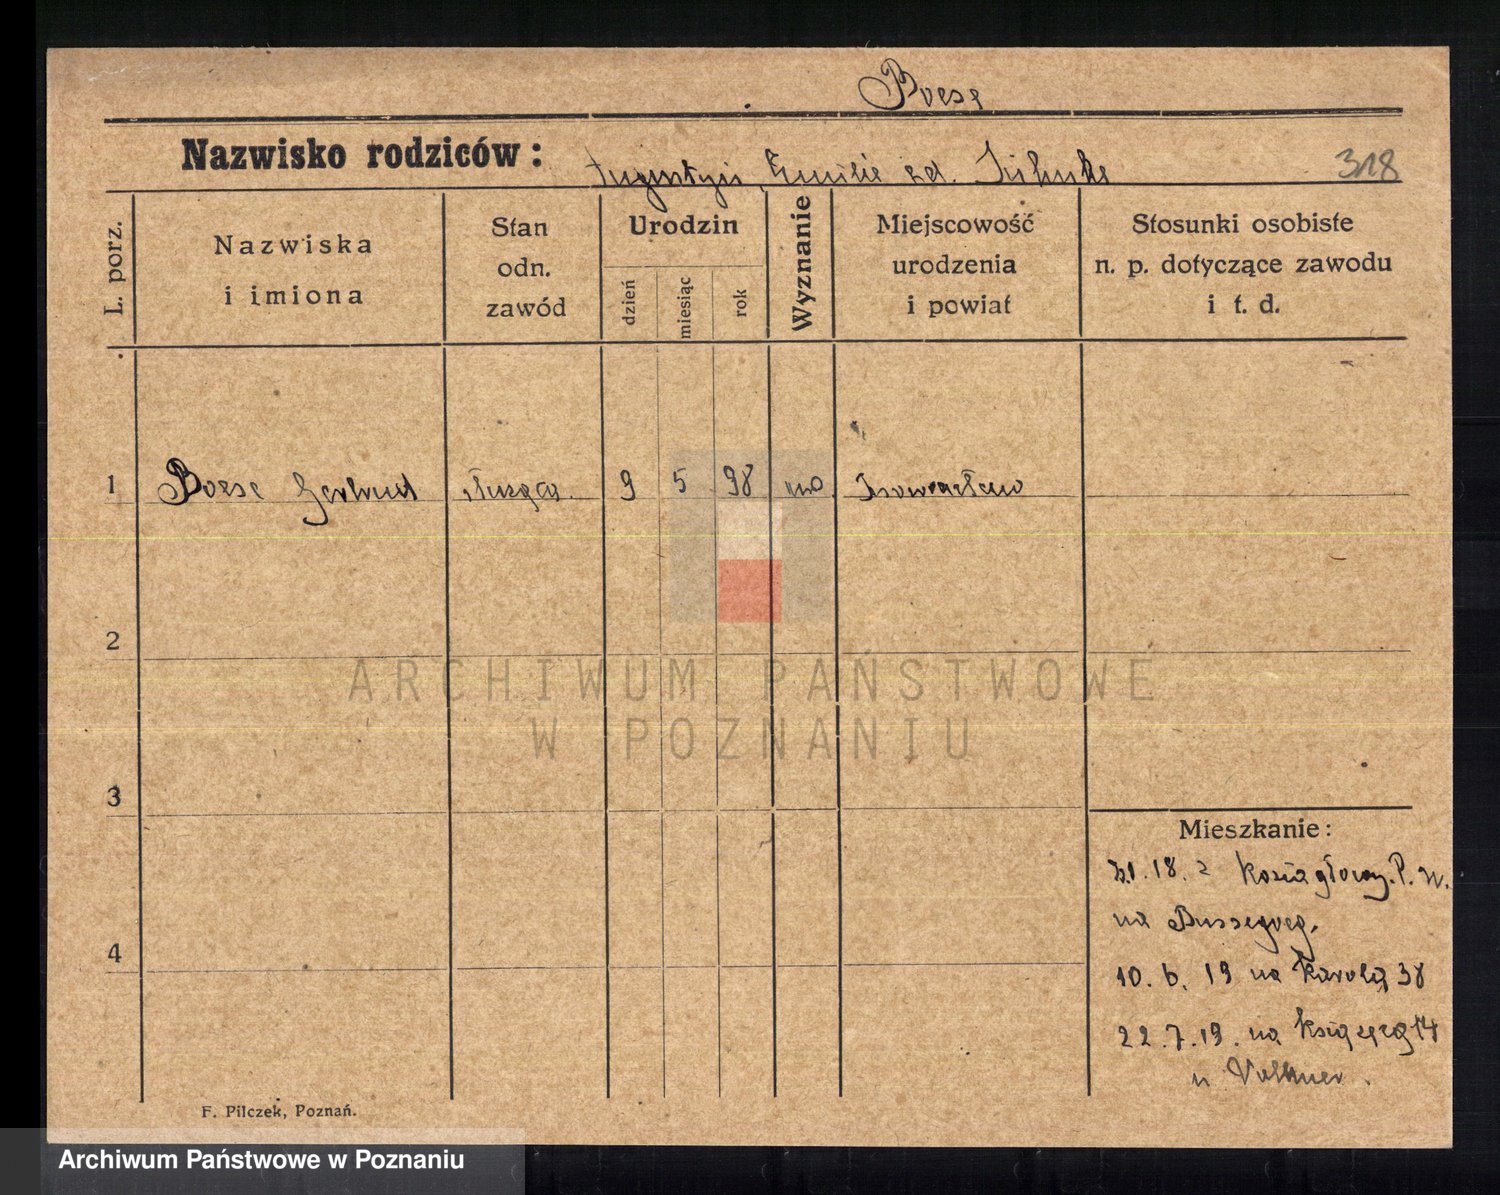 Boese
Nazwisko rodziców:
Augustyn, Emilie zd.
318
L. porz.
Nazwiska
i imiona
Stan
odn.
zawód
Urodzin
dzień
miesiąc
rok
Wyznanie
Miejscowość
urodzenia
i powiat
Stosunki osobiste
n. p. dotyczące zawodu
i t. d.
1 Boese Gertrud służąca 9 5 98 Inowrocław
2
3
4
ARCHIWUM PAŃSTWOWE
W POZNANIU
Mieszkanie:
18. z Koziagłowy. P. W.
na Bussegweg.
10. 6. 19 na Karola 38
22. 7. 19. na Książęcą 14
u Volkner.
F. Pilczek, Poznań.
Archiwum Państwowe w Poznaniu